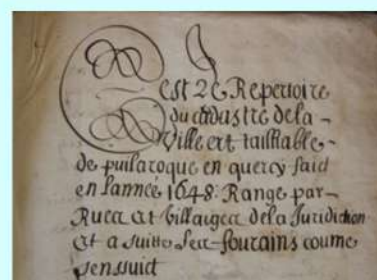 Cest Le Repertoire
du cadastre de la
Ville et taillable
de puilaroque en quercy faid
en lannee 1648. Range par
Rues et Villaiges de la Juridiction
et a suitte les fourains coume
sensuict